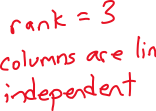 rank = 3
columns are lin
independent